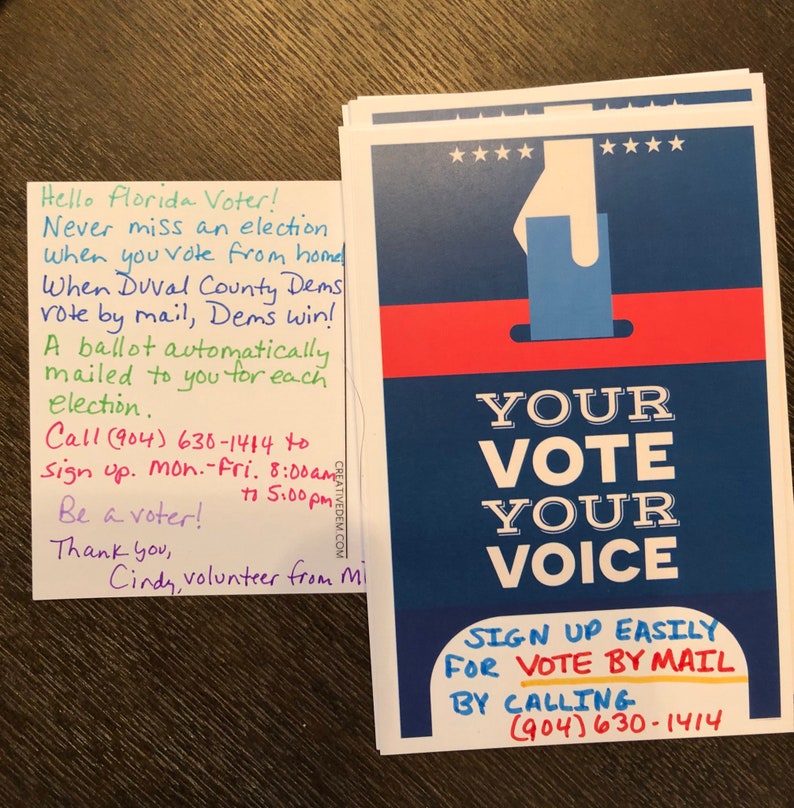 Hello Florida Voter!
Never miss an election
when you vote from home!
When Duval County Dems
vote by mail, Dems win!
A ballot automatically
mailed to you for each
election.
Call (904) 630-1414 to
sign up. Mon.-Fri. 8:00am
to 5:00pm
Be a voter!
Thank you,
Cindy, volunteer from Mi
CREATIVEDEM.COM
YOUR
VOTE
YOUR
VOICE
SIGN UP EASILY
FOR VOTE BY MAIL
BY CALLING
(904) 630-1414